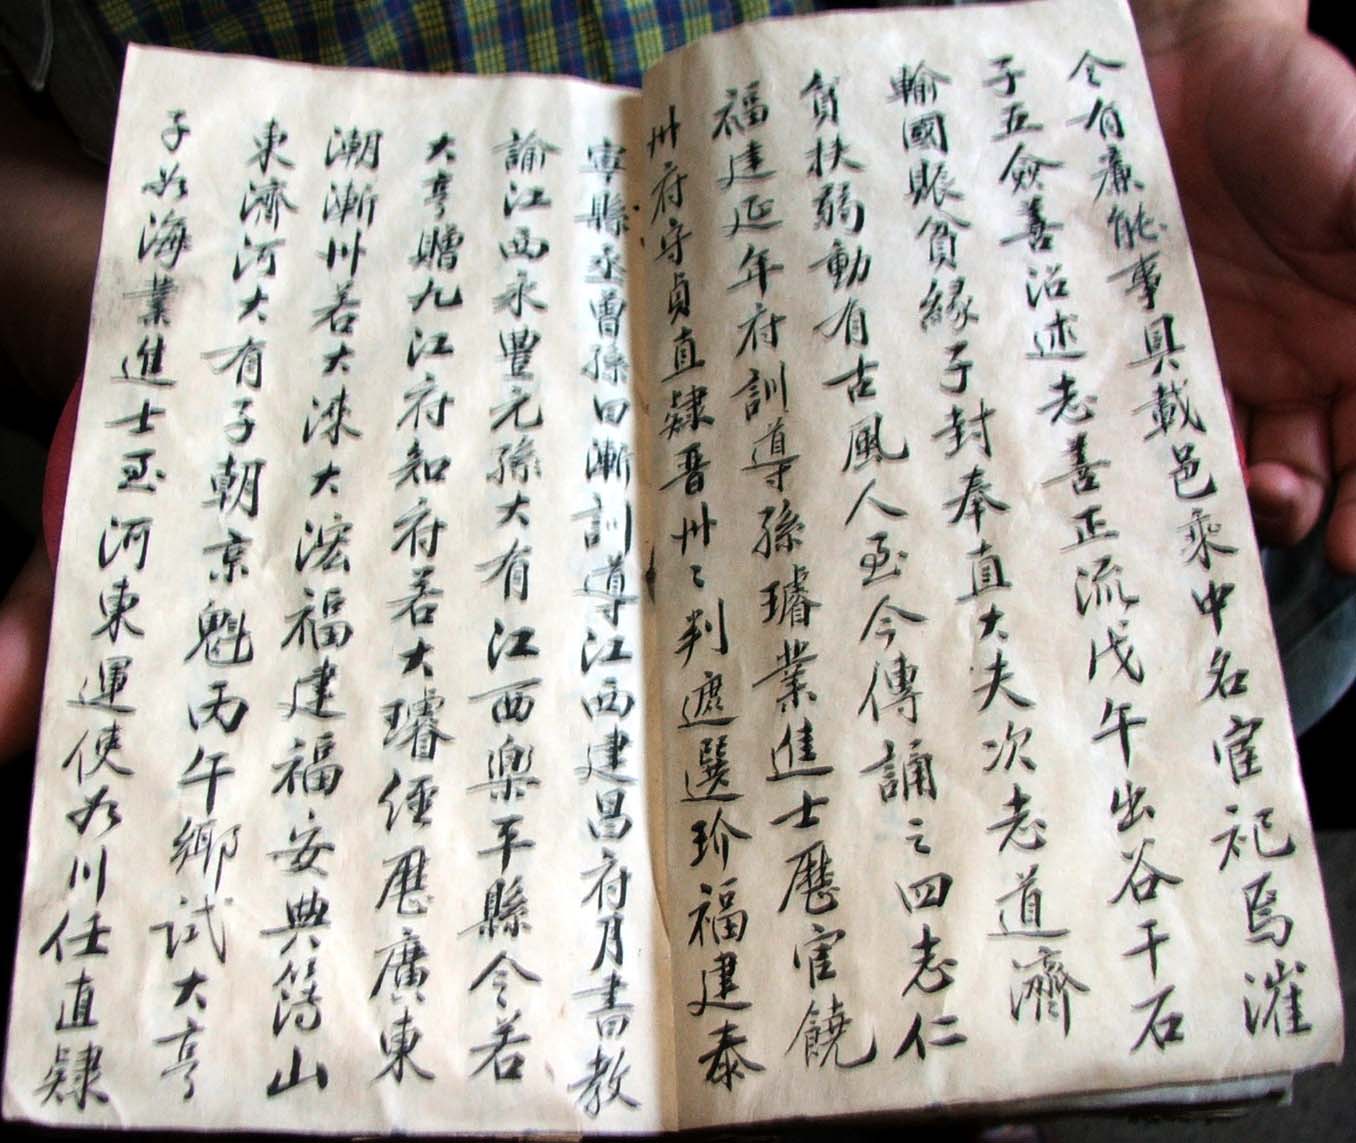 令有廉能事具載邑乘中名宦祀焉漼
子五僉善治述志善正流戊午出谷千石
輸國賑貧緣子封奉直大夫次志道濟
貧扶弱動有古風人至今傳誦之四志仁
福建延年府訓導孫璿業進士歷宦饒
州府守貞直隸晋州〻判遮選玠福建泰
寧縣丞曾孫曰漸訓導江西建昌府月書教
諭江西永豐元孫大有江西樂平縣令若
大亨贈九江府知府若大璿任歷廣東
潮漸州若大洓大浤福建福安典簿山
東濟河大有子朝京魁丙午鄉試大亨
子如海業進士至河東運使如川任直隸